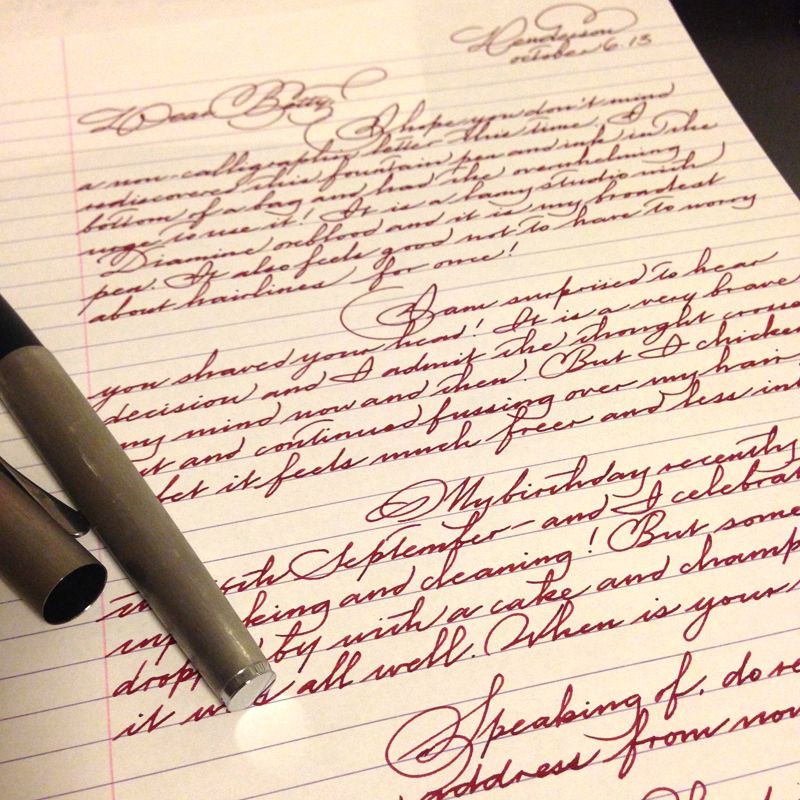 Henderson
october 6. 13
Dear Betty,
I hope you don't mind
a non-calligraphy letter this time. I
rediscovered this fountain pen and ink in the
bottom of a bag and had the overwhelming
urge to use it! It is a Lamy studio with
Diamine oxblood and it is my broadest
pen. It also feels good not to have to worry
about hairlines for once!
I am surprised to hear
you shaved your head! It is a very brave
decision and I admit the thought cross
my mind now and then. But I chicken
out and continued fussing over my hair
bet it feels much freer and less in
My birthday recently
September - and I celebrat
and cleaning! But some
by with a cake and champ
it was all well. When is your
Speaking of, do
address from now